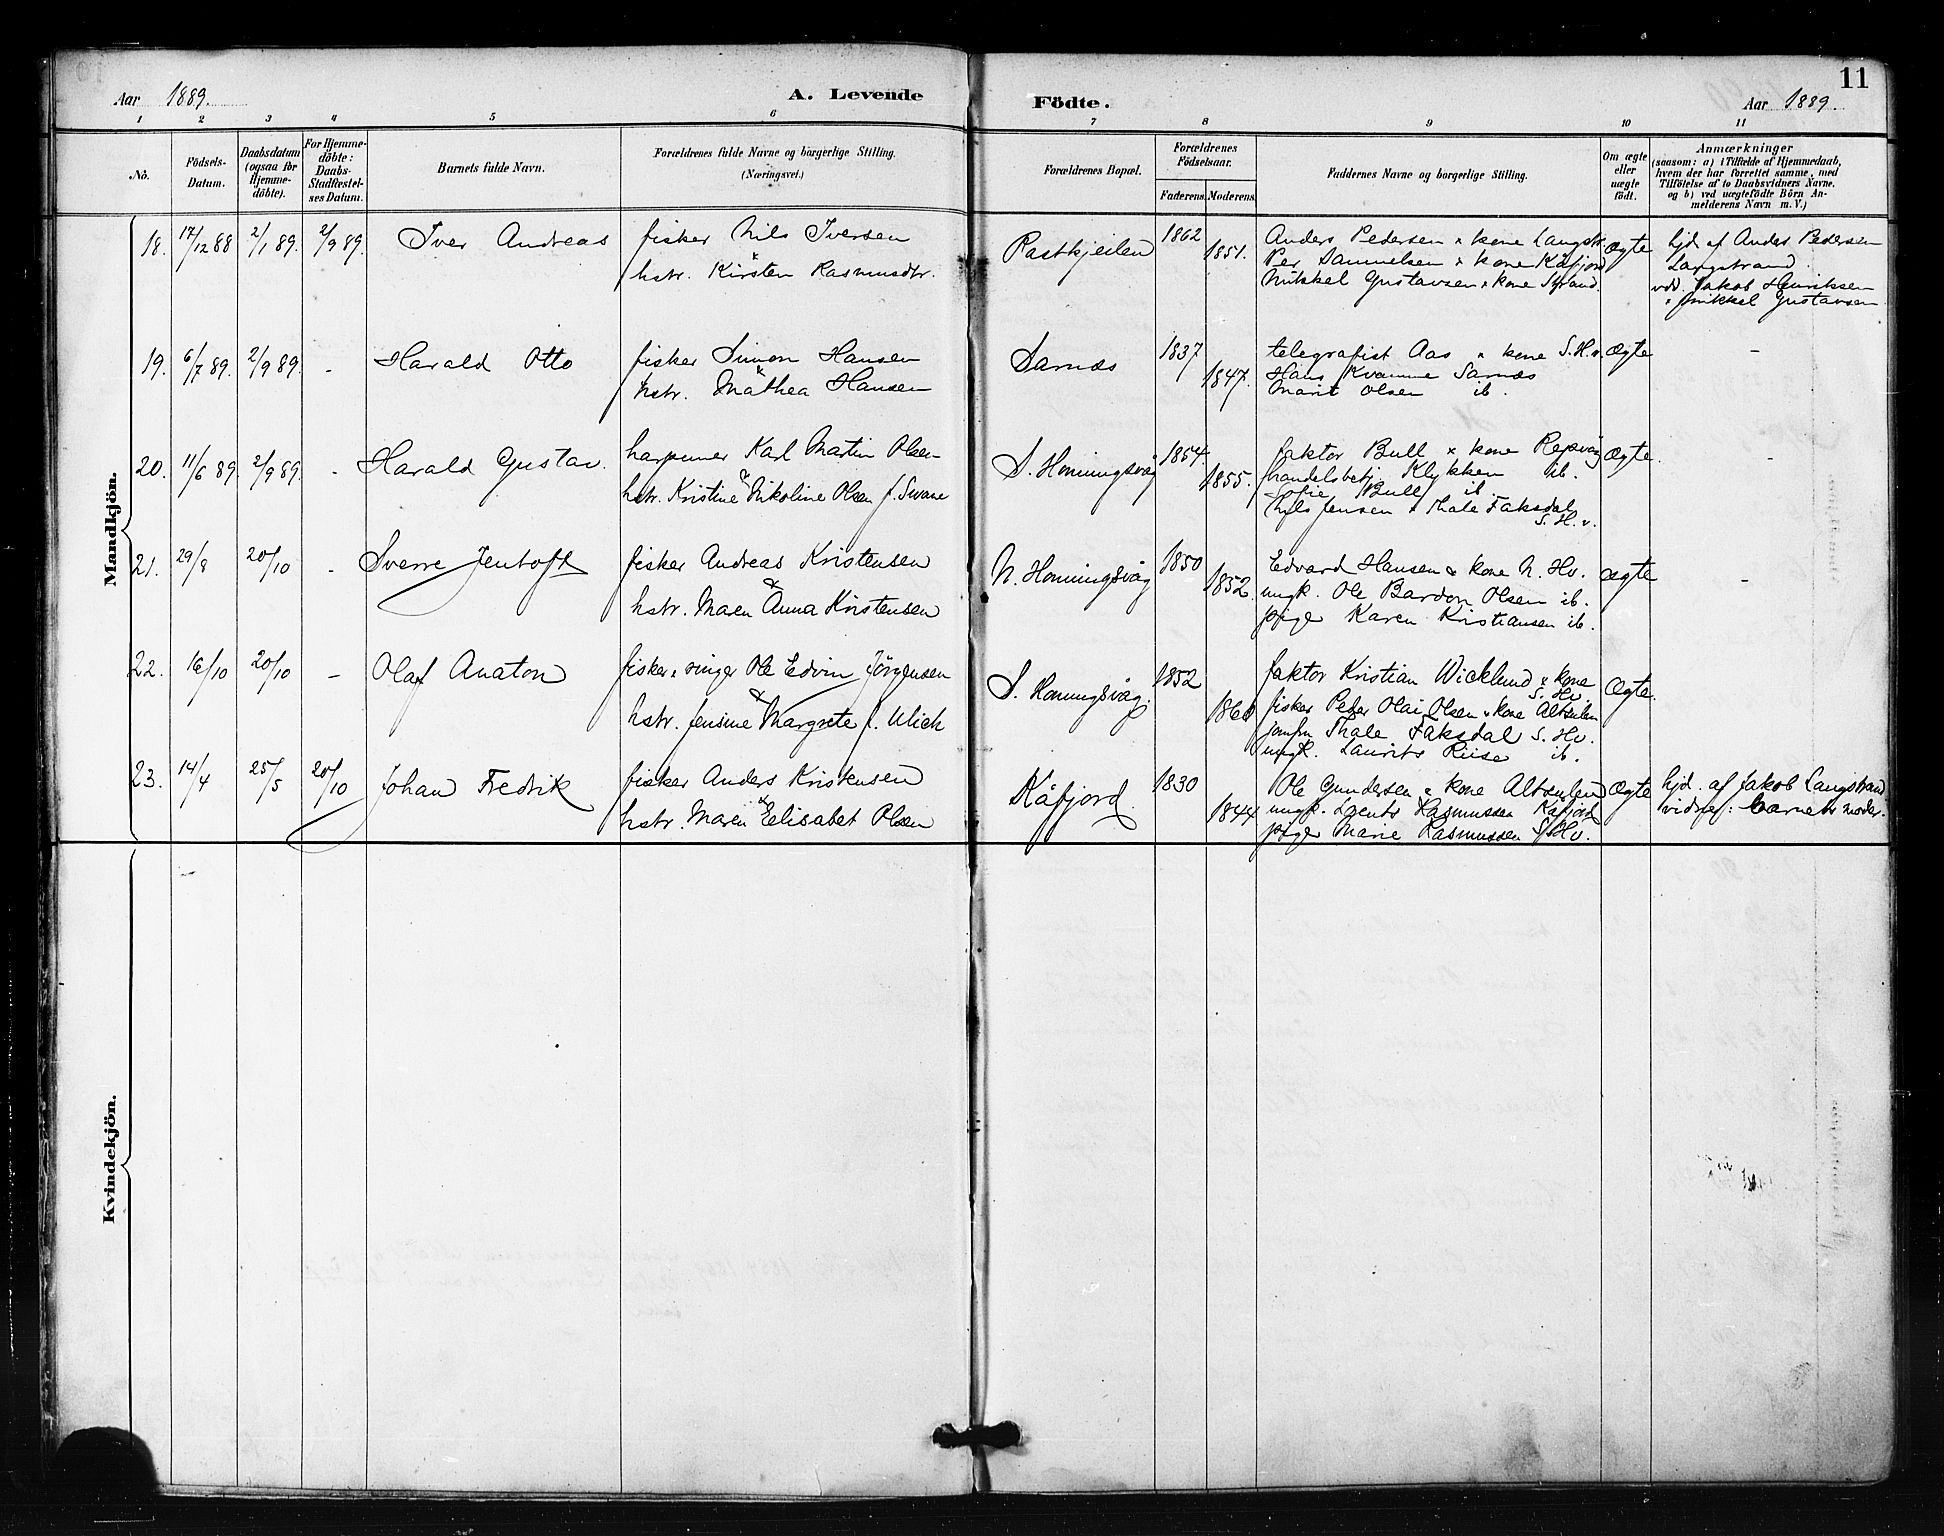 11
Aar 1889. A. Levende Födte. Aar 1889.
1 2 3 4 5 6 7 8 9 10 11
No. Födsels-Datum. Daabsdatum (ogsaa för Hjemme-döbte). For Hjemme-döbte: Daabs-Stadfæstel-ses Datum. Barnets fulde Navn. Forældrenes fulde Navne og borgerlige Stilling. (Næringsvei.) Forældrenes Bopæl. Forældrenes Födselsaar. Faderens Moderens Faddernes Navne og borgerlige Stilling. Om ægte eller uægte födt. Anmærkninger (saasom: a) i Tilfælde af Hjemmedaab, hvem der har forrettet samme, med Tilföielse af to Daabsvidners Navne, og b) ved uægtefödte Börn An-melderens Navn m. V.)
Mandkjön.
18. 17/12 88 2/1 89. 2/9 89. Iver Andreas fisker Nils Iversen
& hstr. Kirsten Rasmusdtr.
1862 1851.
Anders Pedersen & kone Langstr.
Per Samuelsen & kone Kåfjord
Mikkel Gustavsen & kone Strand.
Ægte
hjd. af Anders Pedersen
Langstrand.
vdd. Jakob Henriksen
& Mikkel Gustavsen
19. 6/7 89. 2/9 89. - Harald Otto fisker Simon Hansen
& hstr. Mathea Hansen
Sarnæs 1837 1847.
telegrafist Aas & kone S. H.v.
Hans Kvamme Sarnæs
Marit Olsen ib.
Ægte -
20. 11/6 89. 2/9 89. - Harald Gustav. harpuner Karl Martin Olsen
& hstr. Kristine Nikoline Olsen f. Svane
S. Honningsvåg 1854. 1855.
faktor Bull & kone Repvåg
handelsbetj. Klykken ib.
Sofie Bull ib
Nils Jensen & Thale Faksdal
S. H. v.
Ægte. -
21. 29/8 20/10 - Sverre Jentoft fisker Andreas Kristensen
& hstr. Maren Anna Kristensen
N. Honningsvåg 1850 1852.
Edvard Hansen & kone N. Hv.
ungk. Ole Bardon Olsen ib.
pige Karen Kristiansen ib.
ægte -
22. 16/10 20/10 - Olaf Anaton fisker & ringer Ole Edvin Jörgensen
& hstr. Jensine Margrete f. Ulich
S. Honningsvåg. 1852
faktor Kristian Wicklund & kone
S. Hv.
fisker Peder Olai Olsen & kone Altsulen
jomfru Thale Faksdal S. Hv.
ungk. Laurits Riise ib.
Ægte.
23. 14/4 25/5 20/10 Johan Fredrik fisker Anders Kristensen
& hstr. Maren Elisabet Olsen
Kåfjord. 1830 1844
Ole Gundersen & kone Altsulen
ungk. Rasmussen Kåfjord
pige Marie Rasmussen S. Hv.
Ægte
hjd. af Jakob Langstrand
barnets moder.
Kvindekjön.